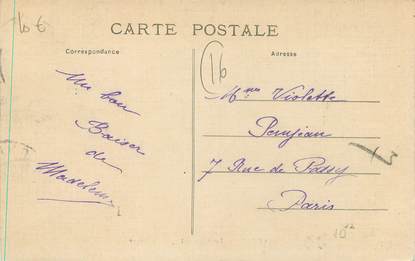 16 €
CARTE POSTALE
Correspondance
Adresse
16
Un bon
Baiser
de
Madeleine
Violette
7 Rue de Passy
Paris